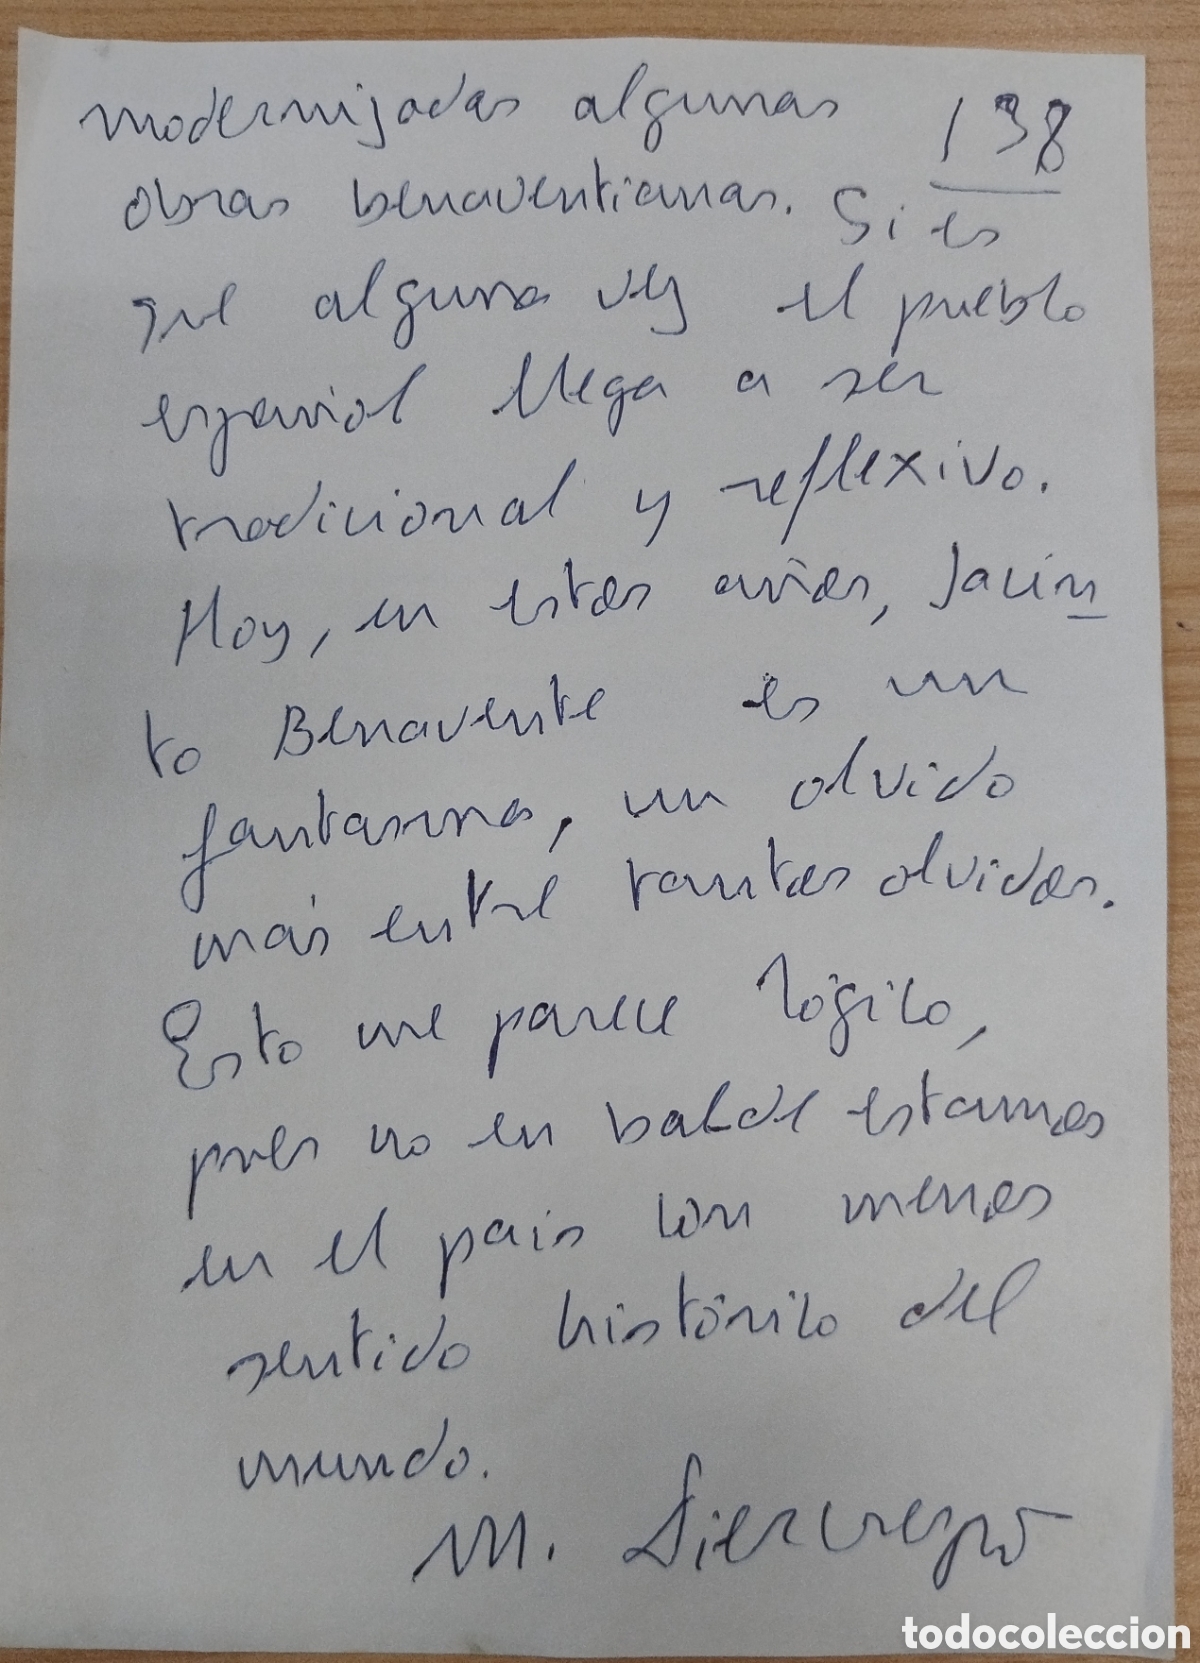 modernizadas algunas 138
obras benaventianas. Si es
que alguna vez el pueblo
español llega a ser
tradicional y reflexivo.
Hoy, en estos años, Jacin
to Benavente es un
fantasma, un olvido
más entre tantos olvidos.
Esto me parece lógico,
pues no en balde estamos
en el pais con menos
sentido histórico del
mundo.
M.
todocoleccion